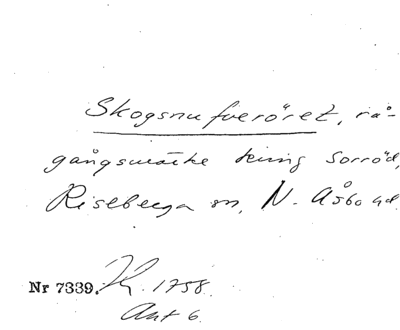 Skogsnufveröret, rå-
gångsmärke kring Sorröd,
Riseberga sn, N. Åsbo hd.
Nr 7339. 1758.
Akt 6